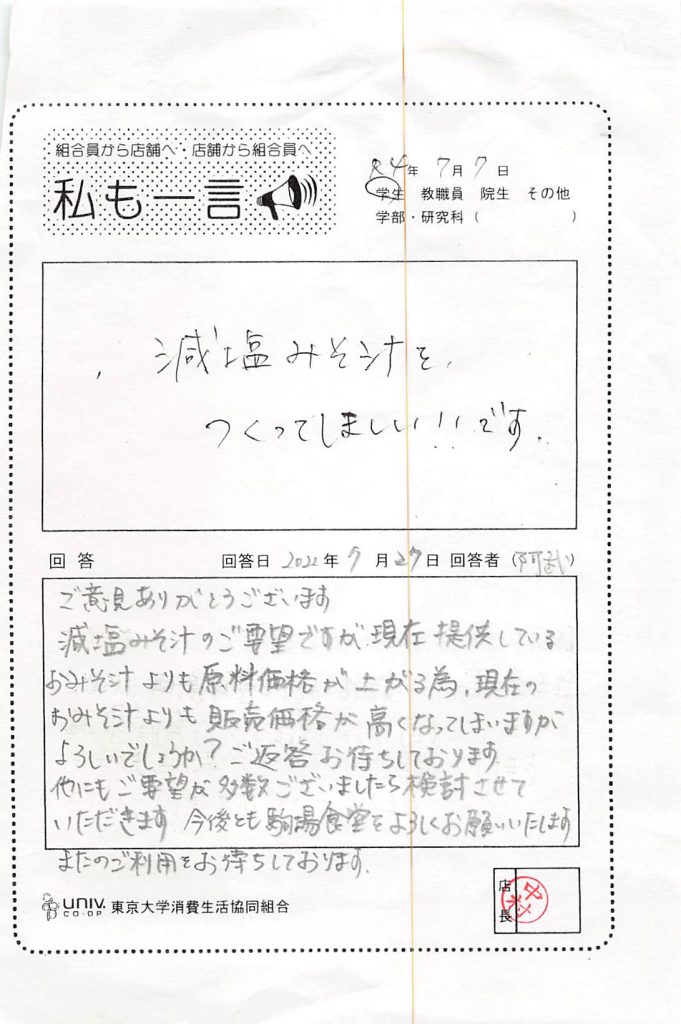 組合員から店舗へ・店舗から組合員へ
私も一言
R4年 7月 7日
学生 教職員 院生 その他
学部・研究科 ( )
減塩みそ汁を
つくってほしい!!です。
回答 回答日 2022年 7月 27日 回答者 (阿部)
ご意見ありがとうございます
減塩みそ汁のご要望ですが、現在提供している
おみそ汁よりも原料価格が上がる為、現在の
おみそ汁よりも販売価格が高くなってしまいますが
よろしいでしょうか? ご返答お待ちしております
他にもご要望が多数ございましたら検討させて
いただきます 今後とも駒場食堂をよろしくお願いいたします
またのご利用をお待ちしております。
UNIV. CO-OP 東京大学消費生活協同組合
店長 中村